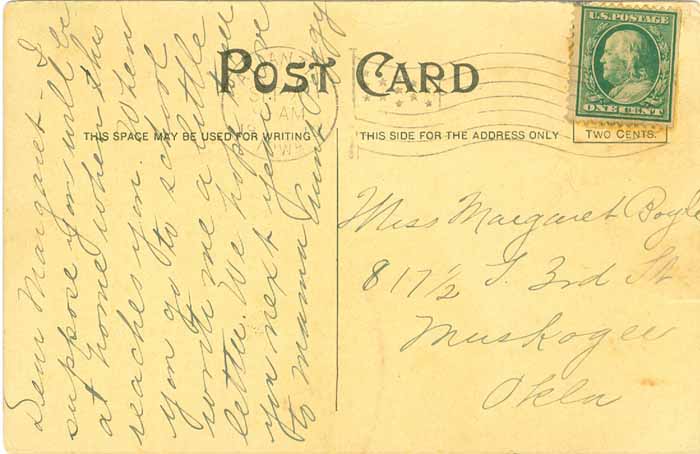 POST CARD
THIS SPACE MAY BE USED FOR WRITING
THIS SIDE FOR THE ADDRESS ONLY
U.S. POSTAGE
ONE CENT
TWO CENTS.
AM
Dear Margaret - I
suppose you will be
at home when this
reaches you. When
you go to school
write me a little
letter. We hope to see
you next year. Love
to mama Aunt Peggy
Miss Margaret Boyle
817 1/2 S. 3rd St
Muskogee
Okla